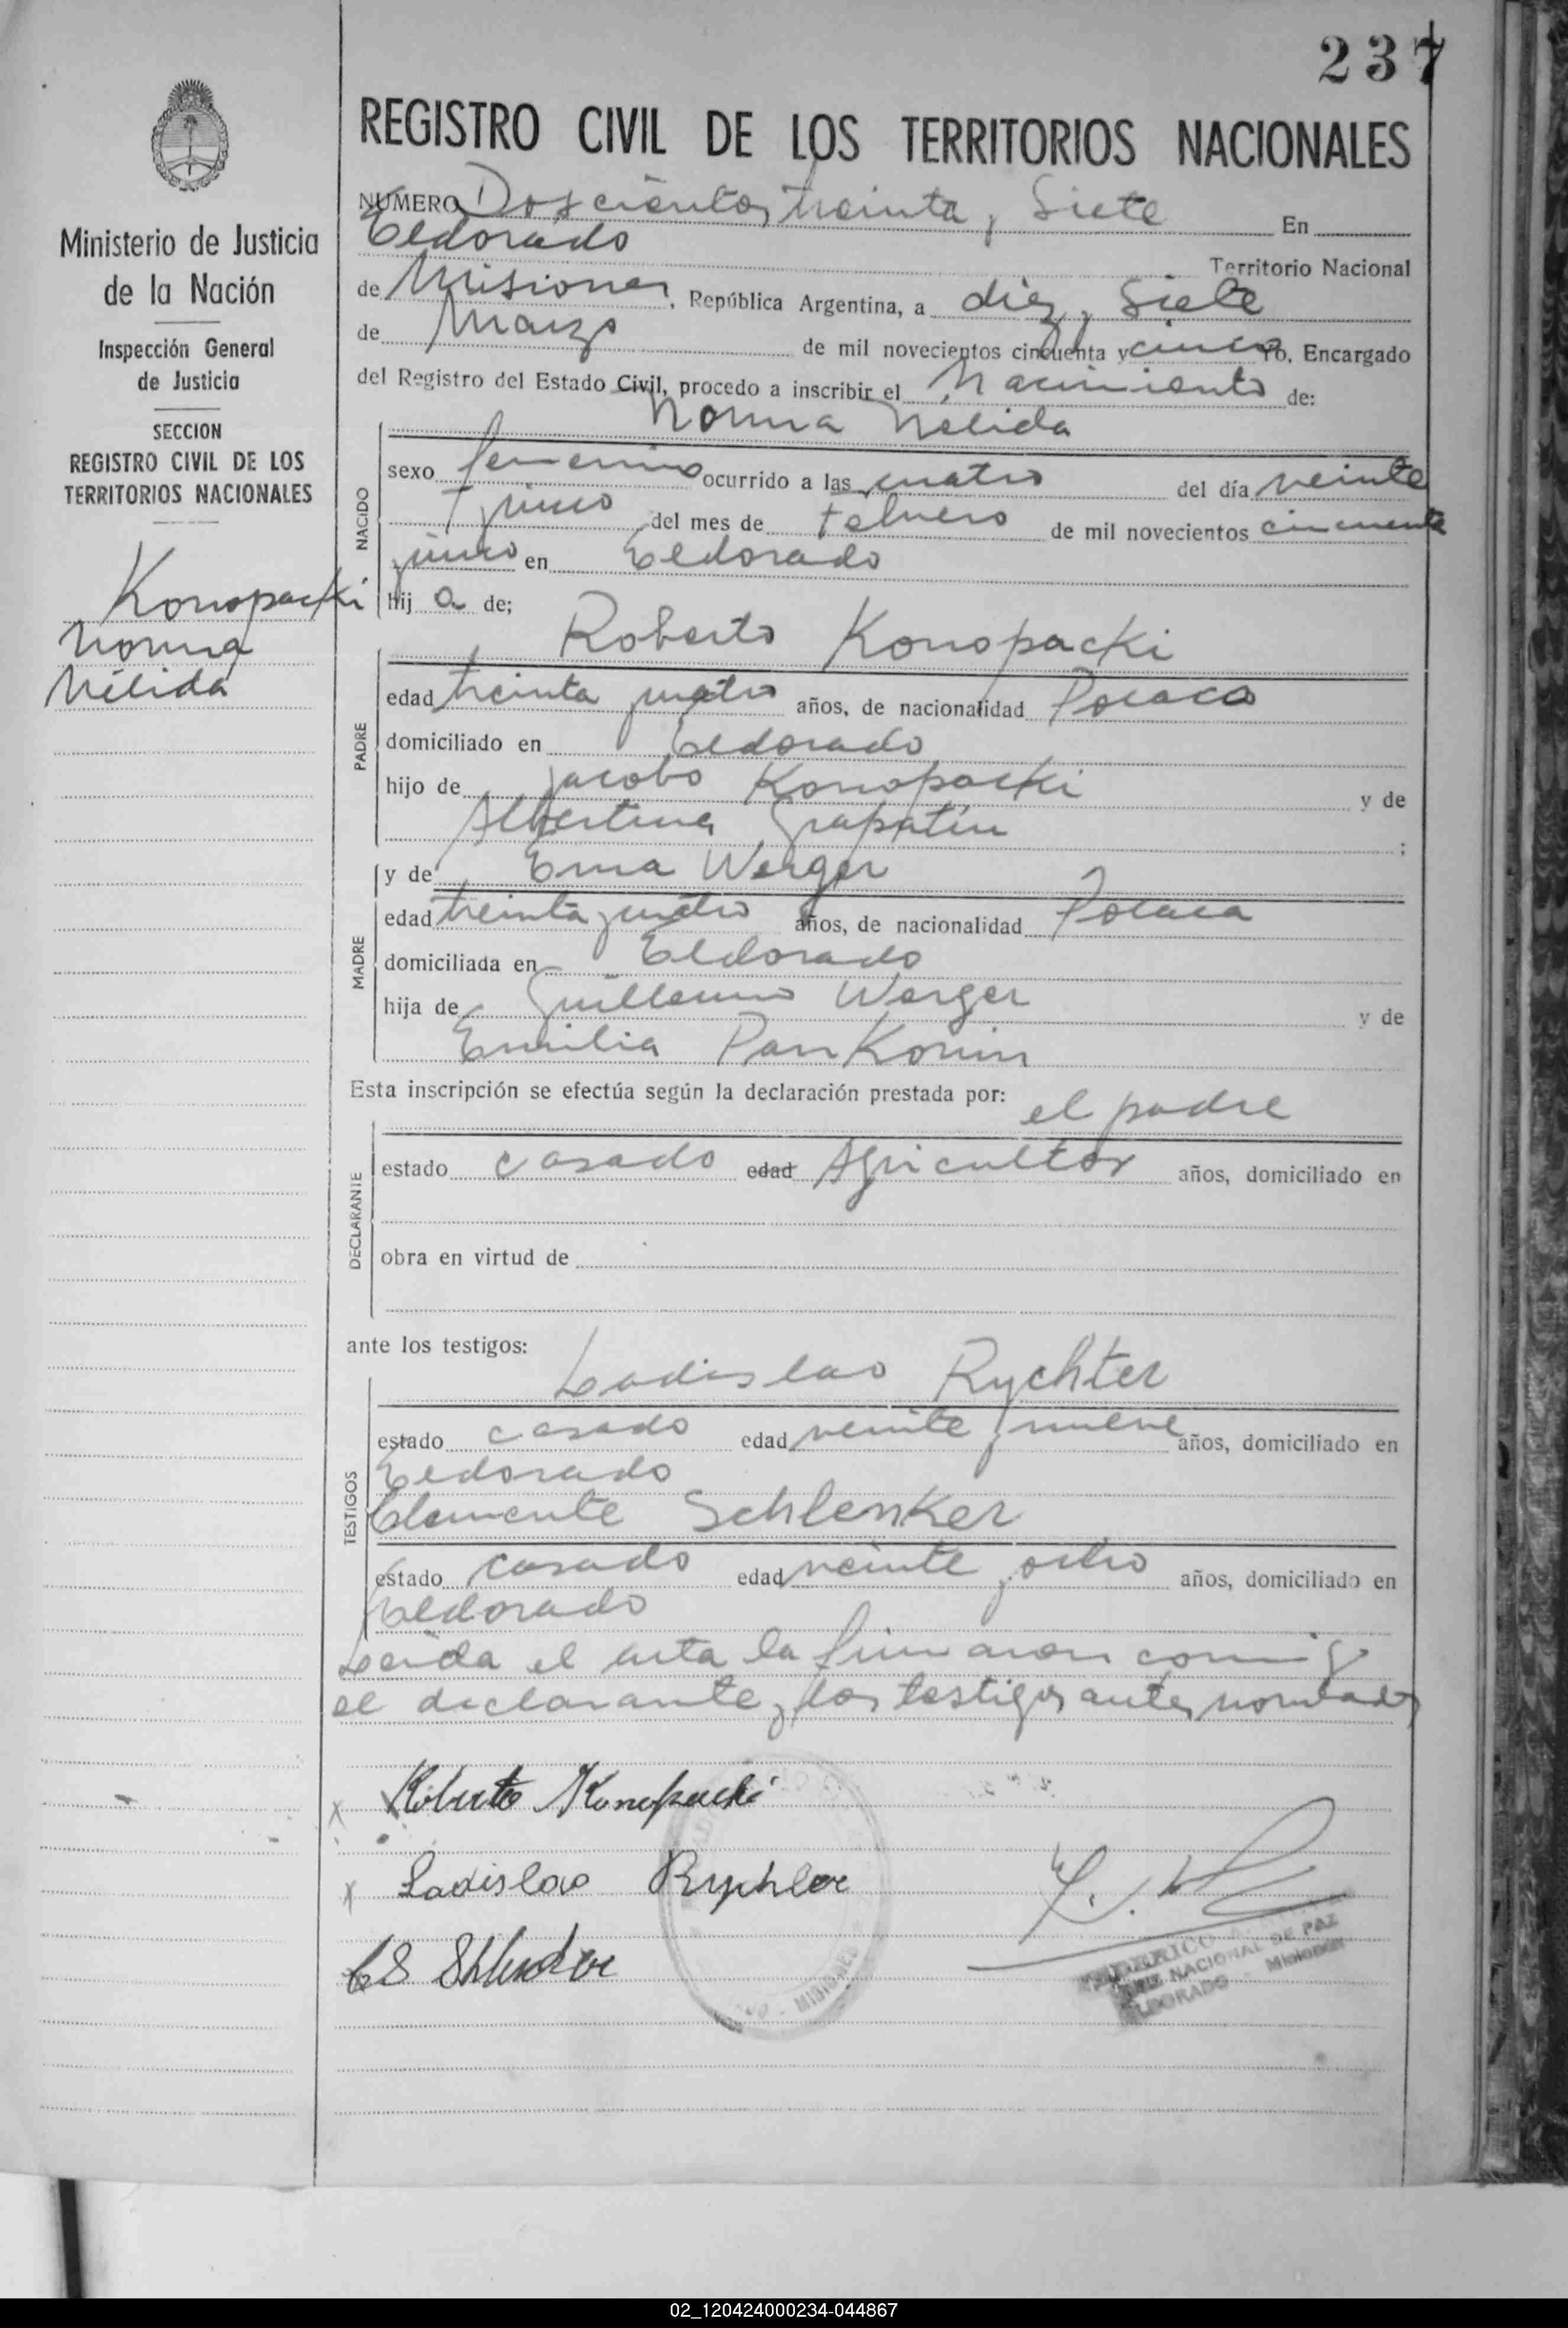 237
REGISTRO CIVIL DE LOS TERRITORIOS NACIONALES
Ministerio de Justicia
de la Nación
Inspección General
de Justicia
SECCION
REGISTRO CIVIL DE LOS
TERRITORIOS NACIONALES
Konopacki
Norma
Nélida
NUMERO Doscientos treinta y Siete En
Eldorado Territorio Nacional
de Misiones, República Argentina, a diez y Siete
de Marzo de mil novecientos cincuenta y cinco Yo, Encargado
del Registro del Estado Civil, procedo a inscribir el Nacimiento de:
NACIDO
Norma Nelida
sexo femenino ocurrido a las cuatro del día veinte
y cinco del mes de Febrero de mil novecientos cincuenta
y cinco en Eldorado
hij a de;
PADRE
Roberto Konopacki
edad treinta y cuatro años, de nacionalidad Polaca
domiciliado en Eldorado
hijo de Jacobo Konopacki y de
Albertina Grapatin ;
MADRE
y de Ema Werger
edad treinta y cuatro años, de nacionalidad Polaca
domiciliada en Eldorado
hija de Guillermo Werger y de
Emilia Pankonin
Esta inscripción se efectúa según la declaración prestada por: el padre
DECLARANTE
estado casado edad Agricultor años, domiciliado en
obra en virtud de
ante los testigos:
TESTIGOS
Ladislao Rychter
estado casado edad veinte y nueve años, domiciliado en
Eldorado
Clemente Schlenker
estado casado edad veinte y ocho años, domiciliado en
Eldorado
Leida el acta la firmaron conmigo
el declarante y los testigos antes nombrados
Roberto Konopacki
Ladislao Rychter
MISIONES
NACIONAL DE PAZ
ELDORADO - Misiones
02_120424000234-044867